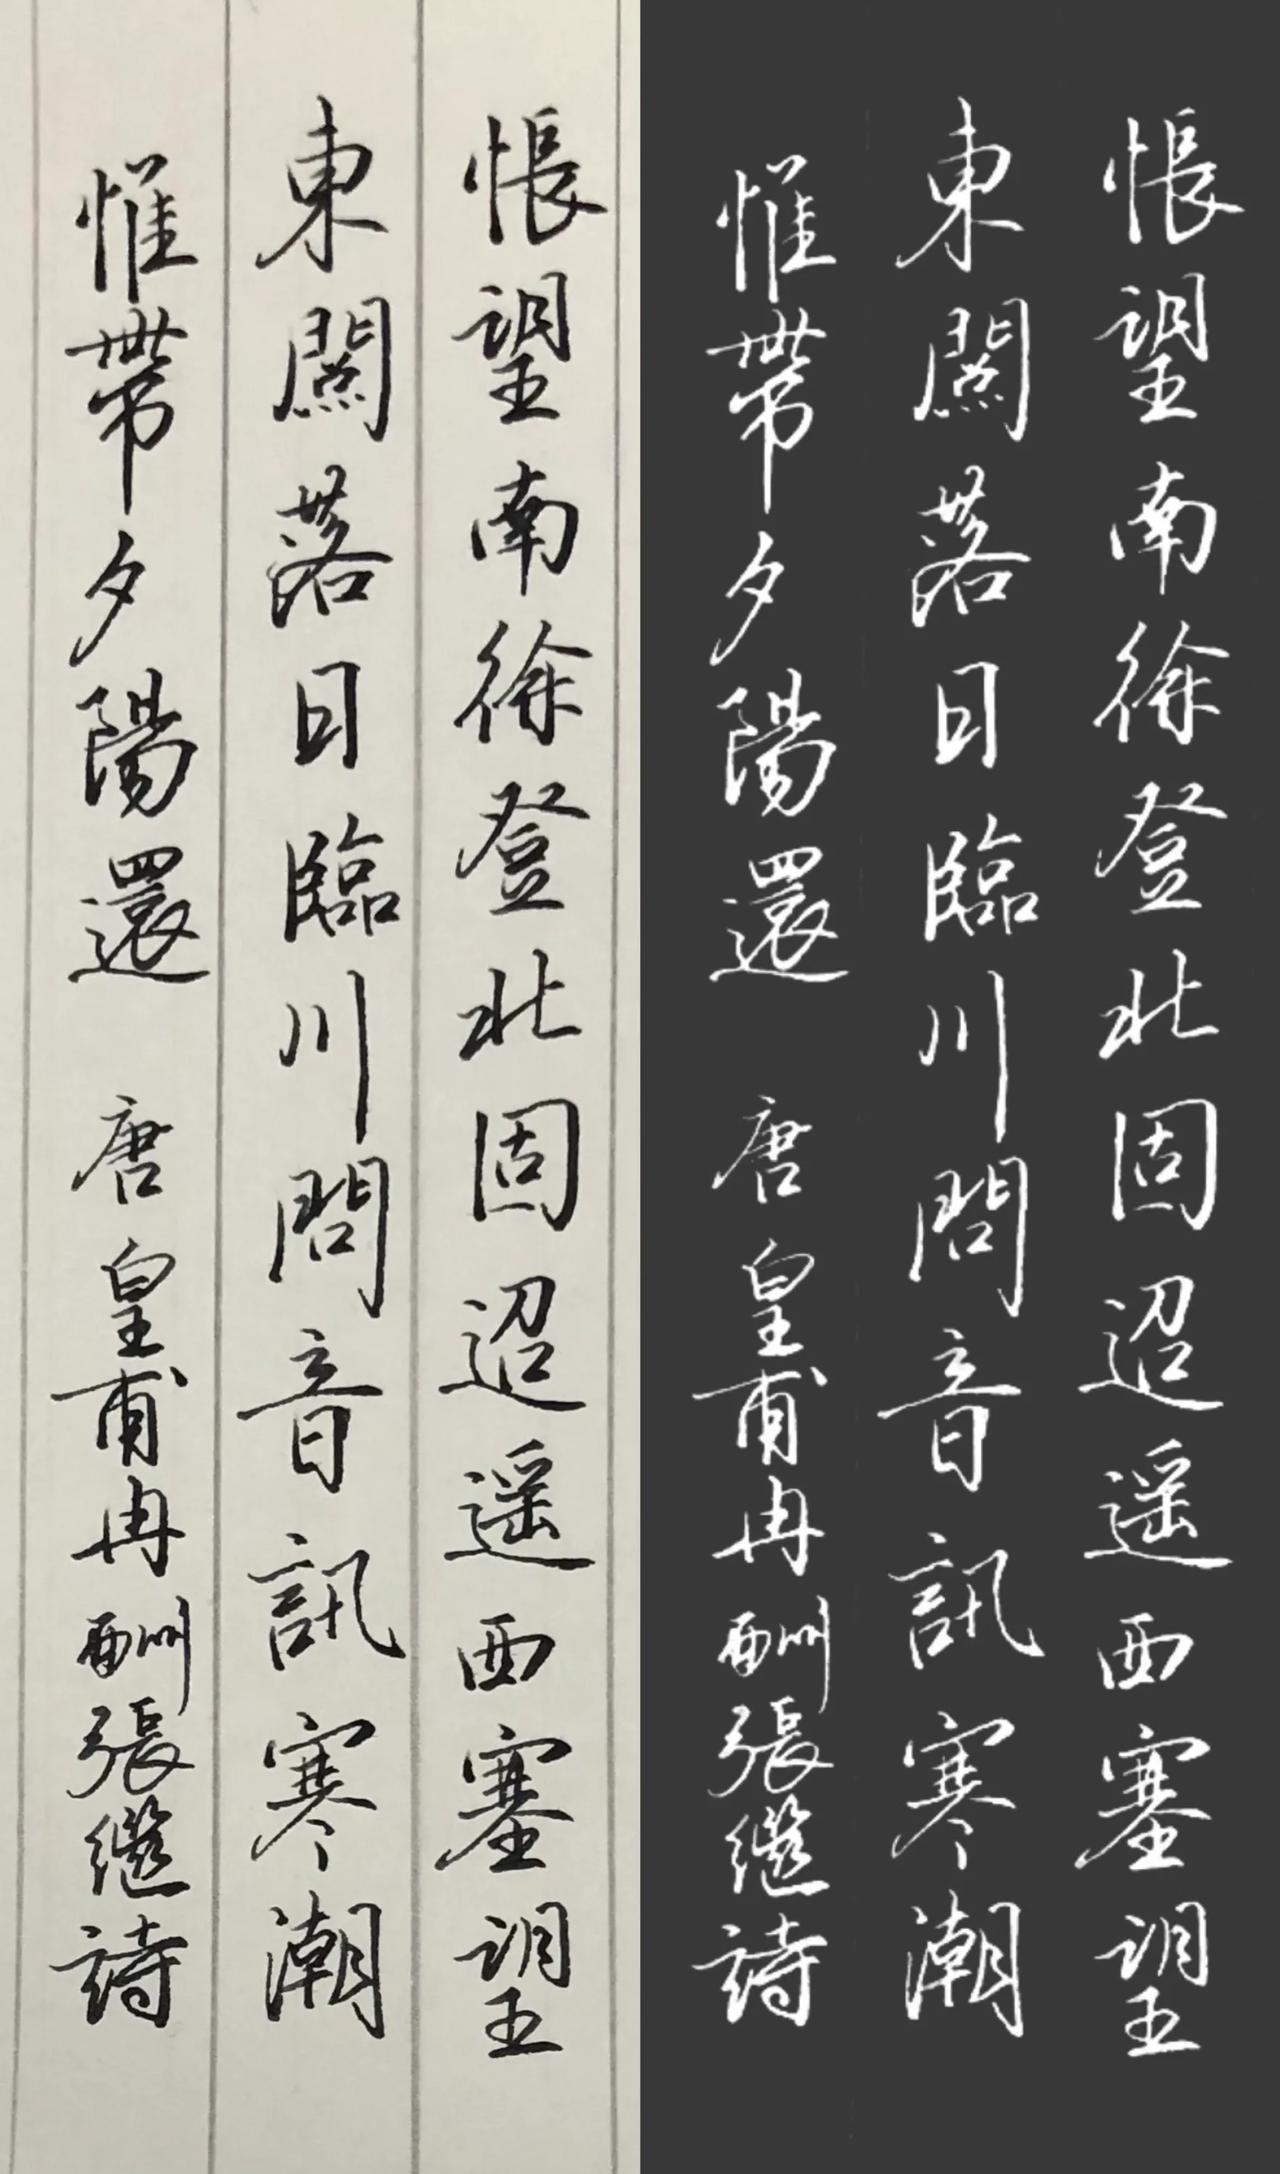 悵望南徐登北固迢遥西塞望
東關落日臨川問音訊寒潮
惟帶夕陽還 唐皇甫冉酬張繼詩
悵望南徐登北固迢遥西塞望
東關落日臨川問音訊寒潮
惟帶夕陽還 唐皇甫冉酬張繼詩